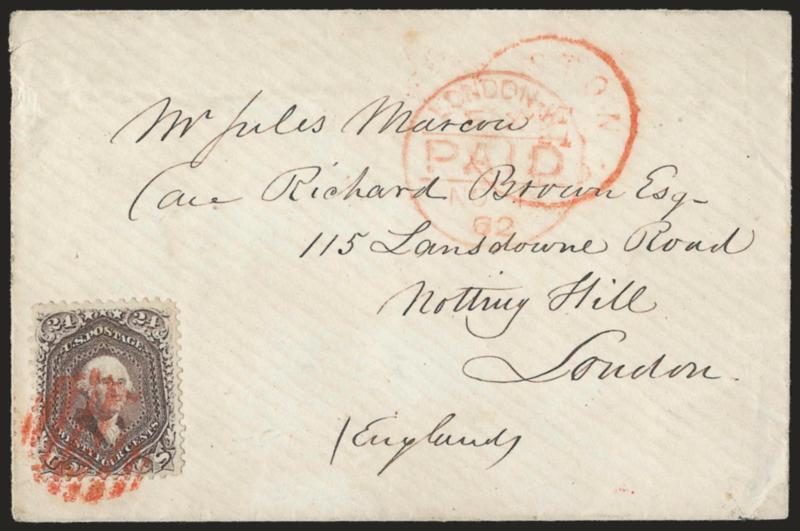 Mr Jules Marcou
Care Richard Brown Esq
115 Lansdowne Road
Notting Hill
London
/England
LONDON
PAID
62
24 24
U.S. POSTAGE
TWENTY FOUR CENTS
U S